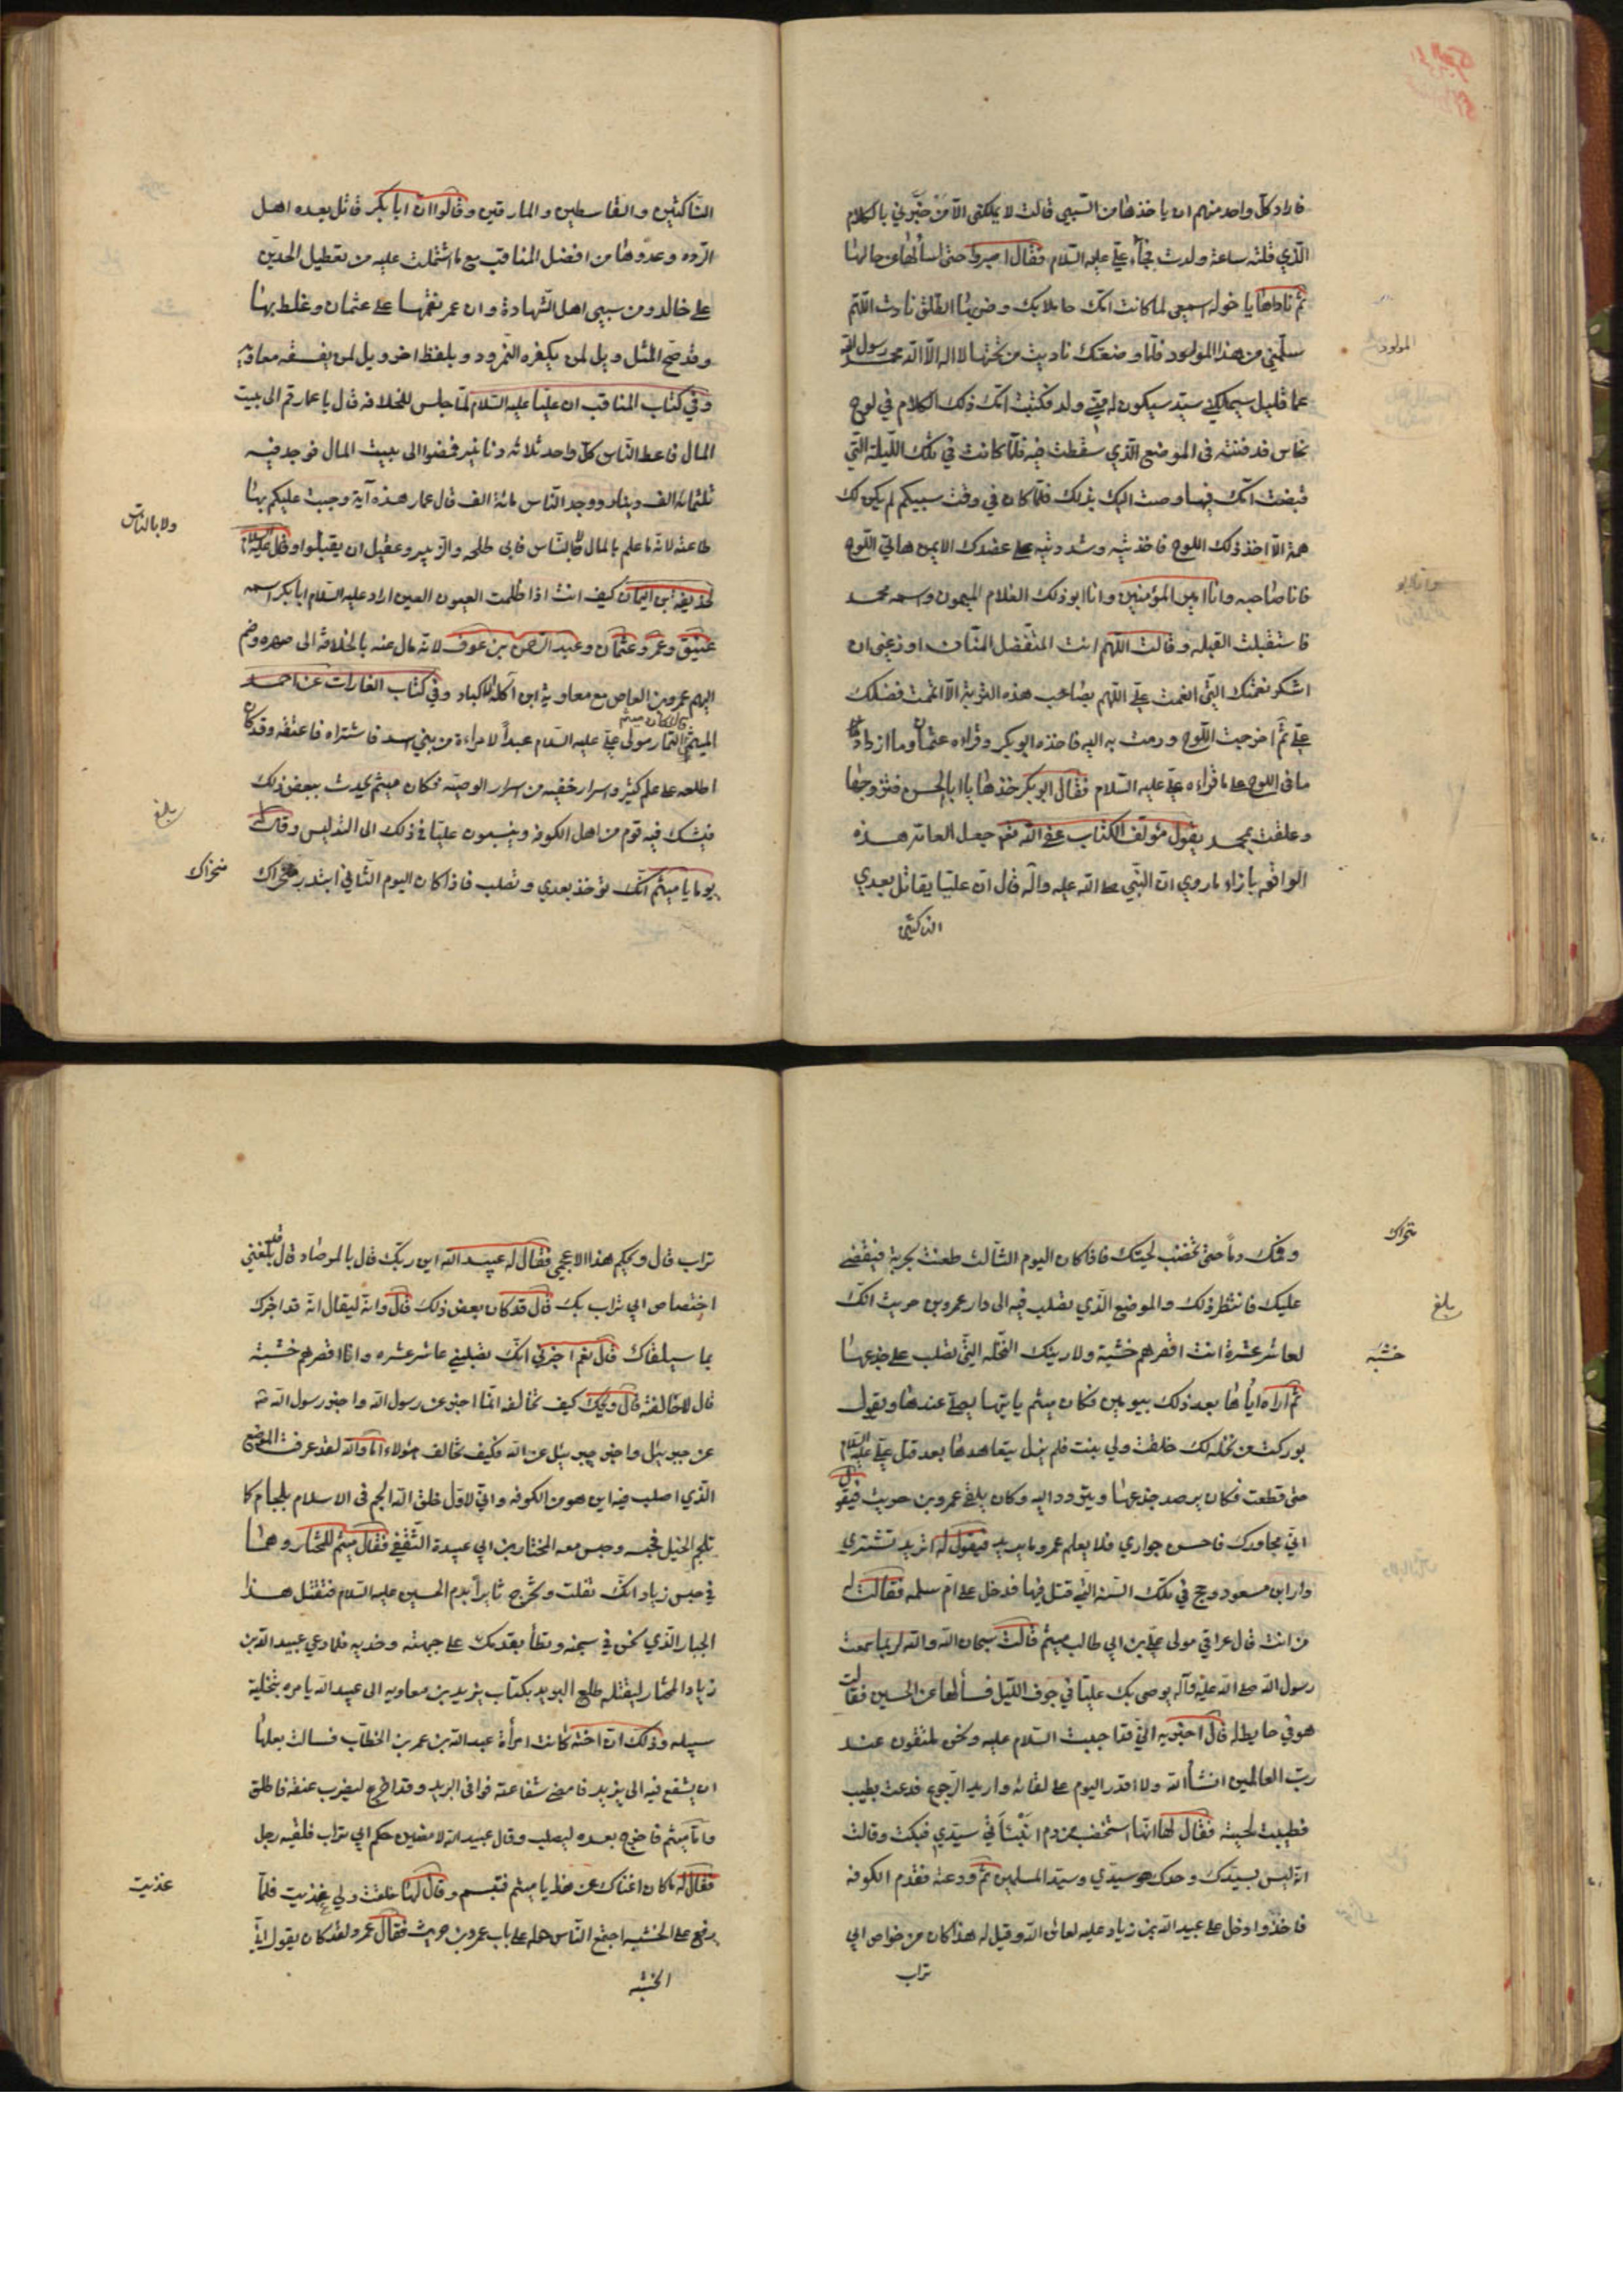 فاراد كل واحد منهم ان ياخذها من السبي قالت لا يملكني الا من خبّرني بالكلام
الذي قلته ساعة ولدت فجاء علي عليه السلام فقال اصبروا حتى نسألها عن حالها
ثم ناداها يا خوله اسمعي لما كانت امك حاملا بك وضربها الطلق نادت اللهم
سلمني من هذا المولود فلما وضعتك ناديت من تحتها لا اله الا الله محمد رسول الله
المولود
عما قليل سيملكني سيد سيكون له مني ولد فكتبت امك ذلك الكلام في لوح
نحاس فدفنته في الموضع الذي سقطت فيه فلما كانت في تلك الليلة التي
قبضت امك فيها وصت اليك بذلك فلما كان في وقت سبيكم لم يكن لك
همة الا اخذ ذلك اللوح فاخذتيه وشددتيه على عضدك الايمن هاتي اللوح
فانا صاحبه وانا امير المؤمنين وانا ابو ذلك الغلام الميمون واسمه محمد
فاستقبلت القبله وقالت اللهم انت المتفضل المنان اوزعني ان
اشكر نعمتك التي انعمت علي اللهم بصاحب هذه التربة الا اتممت فضلك
علي ثم اخرجت اللوح ورمت به اليه فاخذه ابو بكر وقراه عثمان وما ازداد
ما في اللوح على ما قراءه علي عليه السلام فقال ابو بكر خذها يا ابا الحسن فتزوجها
وعلقت بمحمد يقول مؤلف الكتاب عفى الله جعل العامة هذه
الواقعه بازاء ما روي ان النبي صلى الله عليه واله قال ان عليا يقاتل بعدي
الناكثين
الناكثين والقاسطين والمارقين وقالوا ان ابا بكر قاتل بعده اهل
الرده وعدوها من افضل المناقب مع ما اشتملت عليه من تعطيل الحد
على خالد ومن سبي اهل الشهادة وان عمر نقمها على عثمان وغلط بها
وقد صح المثل ويل لمن يكفره النمرود وبلفظ اخر ويل لمن يفسقه معاويه
وفي كتاب المناقب ان عليا عليه السلام لما جلس للخلافه قال يا عمار قم الى بيت
المال فاعط الناس كل واحد ثلاثه دنانير فمضوا الى بيت المال فوجد فيه
ثلثمائة الف دينار ووجد الناس مائة الف قال عمار هذه آية وجبت عليكم بها
طاعته لانه ما علم بالمال ولا بالناس فابى طلحه والزبير وعقيل ان يقبلوا وقال عليه السلام
ولا بالناس
لحذيفة بن اليمان كيف انت اذا ظلمت العيون العين اراد عليه السلام ابا بكر اسمه
عتيق وعمر وعثمان وعبد الرحمن بن عوف لانه مال عنه بالخلافة الى صهره وضم
اليهم عمرو بن العاص مع معاوية ابن اكلة الاكباد وفي كتاب الغارات عن احمد
الميثمي قال كان ميثم التمار مولى علي عليه السلام عبداً لامراءة من بني اسد فاشتراه فاعتقه وقد كان
اطلعه على علم كثير واسرار خفيه من اسرار الوصية فكان ميثم يحدث ببعض ذلك
فيشك فيه قوم من اهل الكوفه وينسبون عليا في ذلك الى التدليس وقال له
بلغ
يوما يا ميثم انك تؤخذ بعدي وتصلب فاذا كان اليوم الثاني ابتدر منخراك
منخراك
وفمك دماً حتى تخضب لحيتك فاذا كان اليوم الثالث طعنت بحربة فيقضى
عليك فانتظر ذلك والموضع الذي تصلب فيه الى دار عمرو بن حريث انك
بلغ
لعاشر عشرة انت اقصرهم خشبة ولارينك النخلة التي تصلب على جذعها
خشبة
ثم اراه اياها بعد ذلك بيومين فكان ميثم ياتيها يصلي عندها ويقول
بوركت من نخله لك خلقت ولي بنت فلم يزل يتعاهدها بعد قتل علي عليه السلام
حتى قطعت فكان يرصد جذعها ويتردد اليه وكان يلقى عمرو بن حريث فيقول
اني مجاورك فاحسن جواري فلا يعلم عمرو ما يريد فيقول له اتريد تشتري
دار ابن مسعود وحج في تلك السنة التي قتل فيها فدخل على ام سلمه فقالت له
من انت قال عراقي مولى علي بن ابي طالب ميثم قالت سبحان الله والله لربما سمعت
رسول الله صلى الله عليه وآله يوصي بك عليا في جوف الليل فسألها عن الحسين فقالت
هو في حايط له قال اخبريه اني قد احببت السلام عليه ونحن ملتقون عند
رب العالمين انشأ الله ولا اقدر اليوم على لقائه واريد الرجوع فدعت بطيب
فطيبت لحيته فقال لها انها ستخضب من دم انبئنا في سيدي فبكت وقالت
انه ليس بسيدك وحدك هو سيدي وسيد المسلمين ثم ودعته فقدم الكوفه
فاخذ وادخل على عبيد الله بن زياد عليه لعاين الله وقيل له هذا كان من خواص ابي
تراب
تراب قال ويحكم هذا الاعجمي فقال له عبيد الله اين ربك قال بالمرصاد قال قد بلغني
اختصاص ابي تراب بك قال قد كان بعض ذلك قال وانه ليقال انه قد اخبرك
بما سيلقاك قال نعم اخبرني انك تصلبني عاشر عشره وانا اقصرهم خشبة
قال لاخالفنه قال ويحك كيف تخالفه انما اخبر عن رسول الله واخبر رسول الله
عن جبرئيل واخبر جبرئيل عن الله فكيف تخالف هؤلاء اما والله لقد عرفت الموضع
الذي اصلب فيه اين هو من الكوفه واني لاول خلق الله الجم في الاسلام بلجام كما
تلجم الخيل فحبسه وحبس معه المختار بن ابي عبيدة الثقفي فقال ميثم للمختار وهما
في حبس زياد انك تفلت وتخرج ثائراً بدم الحسين عليه السلام فتقتل هذا
الجبار الذي نحن في سجنه وتطأ بقدمك على جبهته وخديه فلما دعى عبيد الله بن
زياد المختار ليقتله طلع البريد بكتاب يزيد بن معاويه الى عبيد الله يامره بتخلية
سبيله وذلك ان اخته كانت امرأة عبد الله بن عمر بن الخطاب فسالت بعلها
ان يشفع فيه الى يزيد فامضى شفاعته فوافى البريد وقد اخرج ليضرب عنقه فاطلق
واما ميثم فاخرج بعده ليصلب وقال عبيد الله لامضين حكم ابي تراب فلقيه رجل
فقال له ما كان اغناك عن هذا يا ميثم فتبسم وقال لها خلقت ولي غذيت فلما
غذيت
رفع على الخشبه اجتمع الناس حوله على باب عمرو بن حريث فقال عمرو لقد كان يقول اني
الخشبه